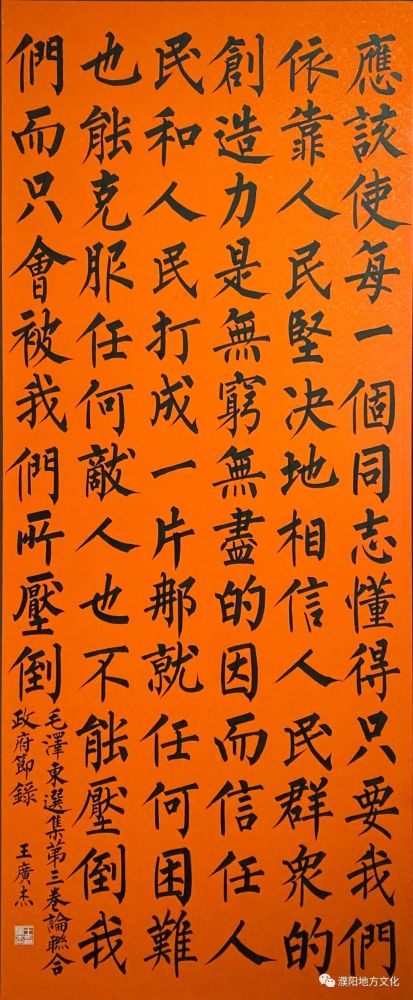 應該使每一個同志懂得只要我們
依靠人民堅决地相信人民群衆的
創造力是無窮無盡的因而信任人
民和人民打成一片那就任何困難
也能克服任何敵人也不能壓倒我
們而只會被我們所壓倒
毛澤東選集第三卷論聯合
政府節錄
王廣杰
濮阳地方文化